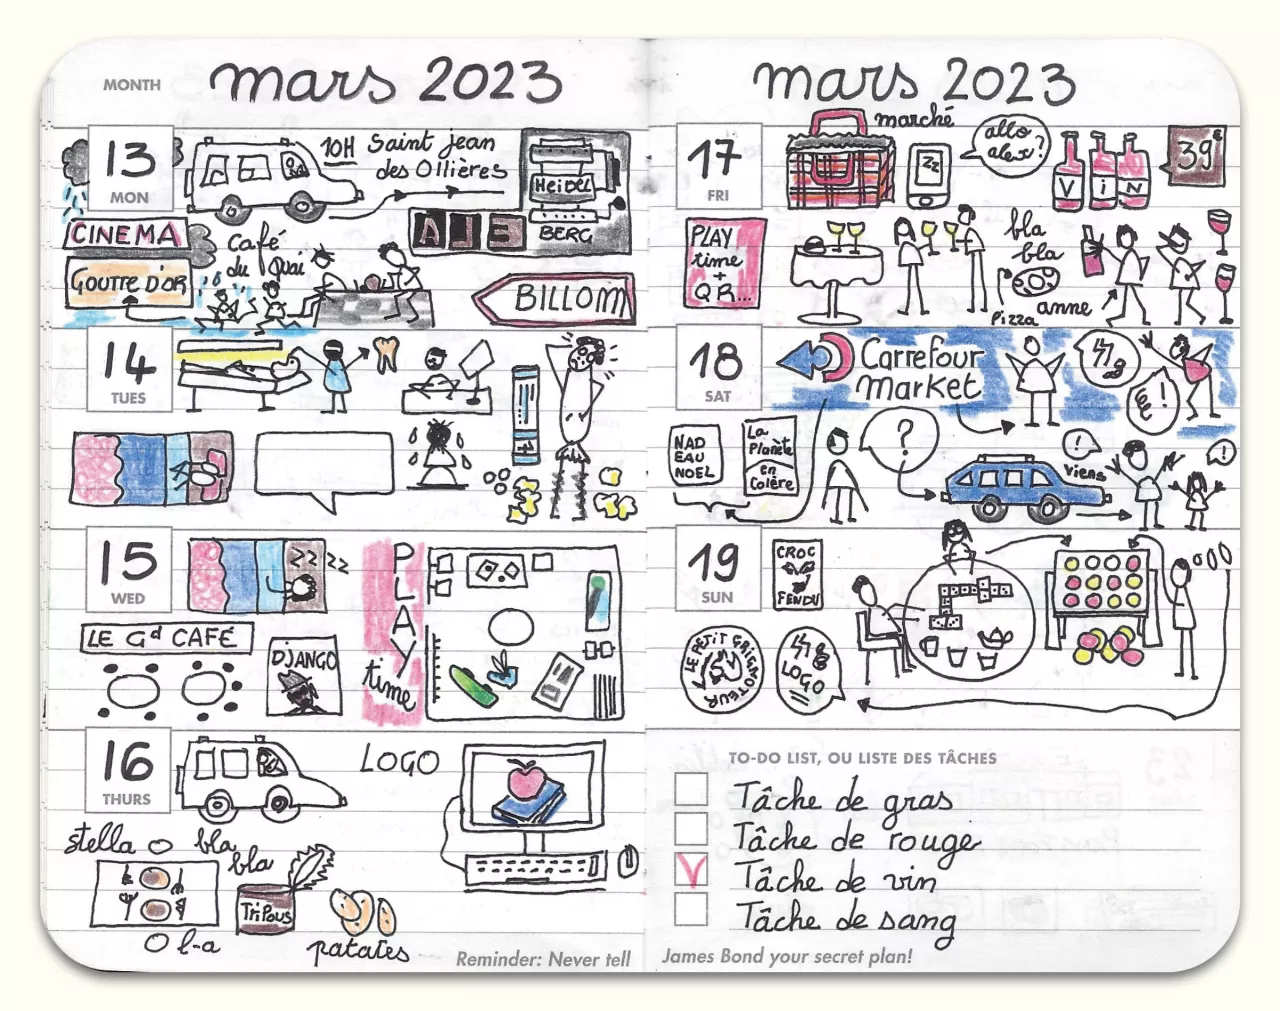 MONTH
mars 2023
13
MON
10H Saint jean
des Ollières
HEIDEL
BERG
AJE
CINEMA
GOUTTE D'OR
café
du quai
BILLOM
14
TUES
15
WED
ZZ ZZ
PLAY
time
LE Gd CAFÉ
DJANGO
16
THURS
LOGO
stella
bla
bla
TRiPOUS
l-a
patates
Reminder: Never tell
mars 2023
17
FRI
marché
ZZ
allo
alex?
ViN
39
PLAY
time
+
QR...
bla
bla
Pizza
anne
18
SAT
Carrefour
Market
NAD
EAU
NOEL
La
Planète
en
Colère
?
!
viens
!
!
19
SUN
CROC
FENDU
LE PETIT GRIGNOTEUR
LOGO
TO-DO LIST, OU LISTE DES TÂCHES
Tâche de gras
Tâche de rouge
Tâche de vin
Tâche de sang
James Bond your secret plan!